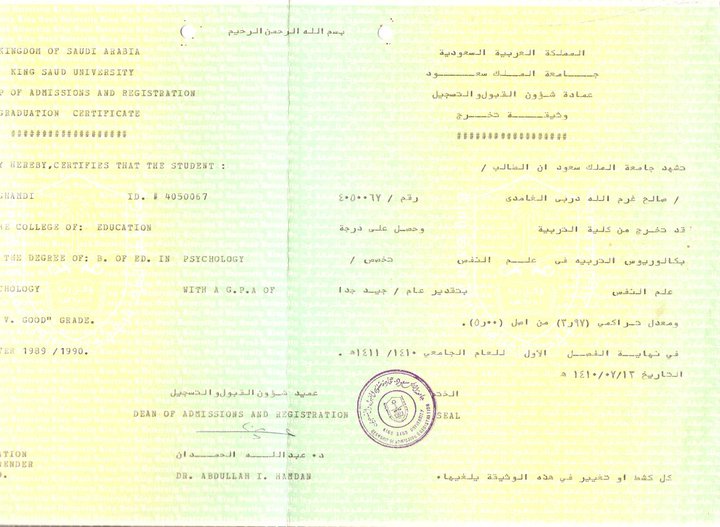 بسم الله الرحمن الرحيم
KINGDOM OF SAUDI ARABIA
المملكة العربية السعودية
KING SAUD UNIVERSITY
جامعة الملك سعود
P OF ADMISSIONS AND REGISTRATION
عمادة شؤون القبول والتسجيل
GRADUATION CERTIFICATE
وثيقة تخرج
###################
##################
Y HEREBY,CERTIFIES THAT THE STUDENT :
تشهد جامعة الملك سعود ان الطالب /
HAMDI ID. # 4050067
/ صالح غرم الله دربى الغامدى رقم / ٤٠٥٠٠٦٧
HE COLLEGE OF: EDUCATION
قد تخرج من كلية التربية وحصل على درجة
THE DEGREE OF: B. OF ED. IN PSYCHOLOGY
بكالوريوس التربيه فى علم النفس تخصص /
CHOLOGY WITH A G.P.A OF
علم النفس بتقدير عام / جيد جدا
V. GOOD" GRADE.
ومعدل تراكمي (٣٫٩٧) من اصل (٥٫٠٠).
TER 1989 /1990.
في نهاية الفصل الاول للعام الجامعي ١٤١٠/ ١٤١١ه .
التاريخ ١٤١٠/٠٧/١٣ ه
عميد شؤون القبول والتسجيل
الختم
DEAN OF ADMISSIONS AND REGISTRATION
SEAL
KING SAUD UNIVERSITY
ATION
GENDER
د٠ عبدالله الحمدان
DR. ABDULLAH I. HAMDAN
كل كشط او تغيير في هذه الوثيقة يلغيها٠